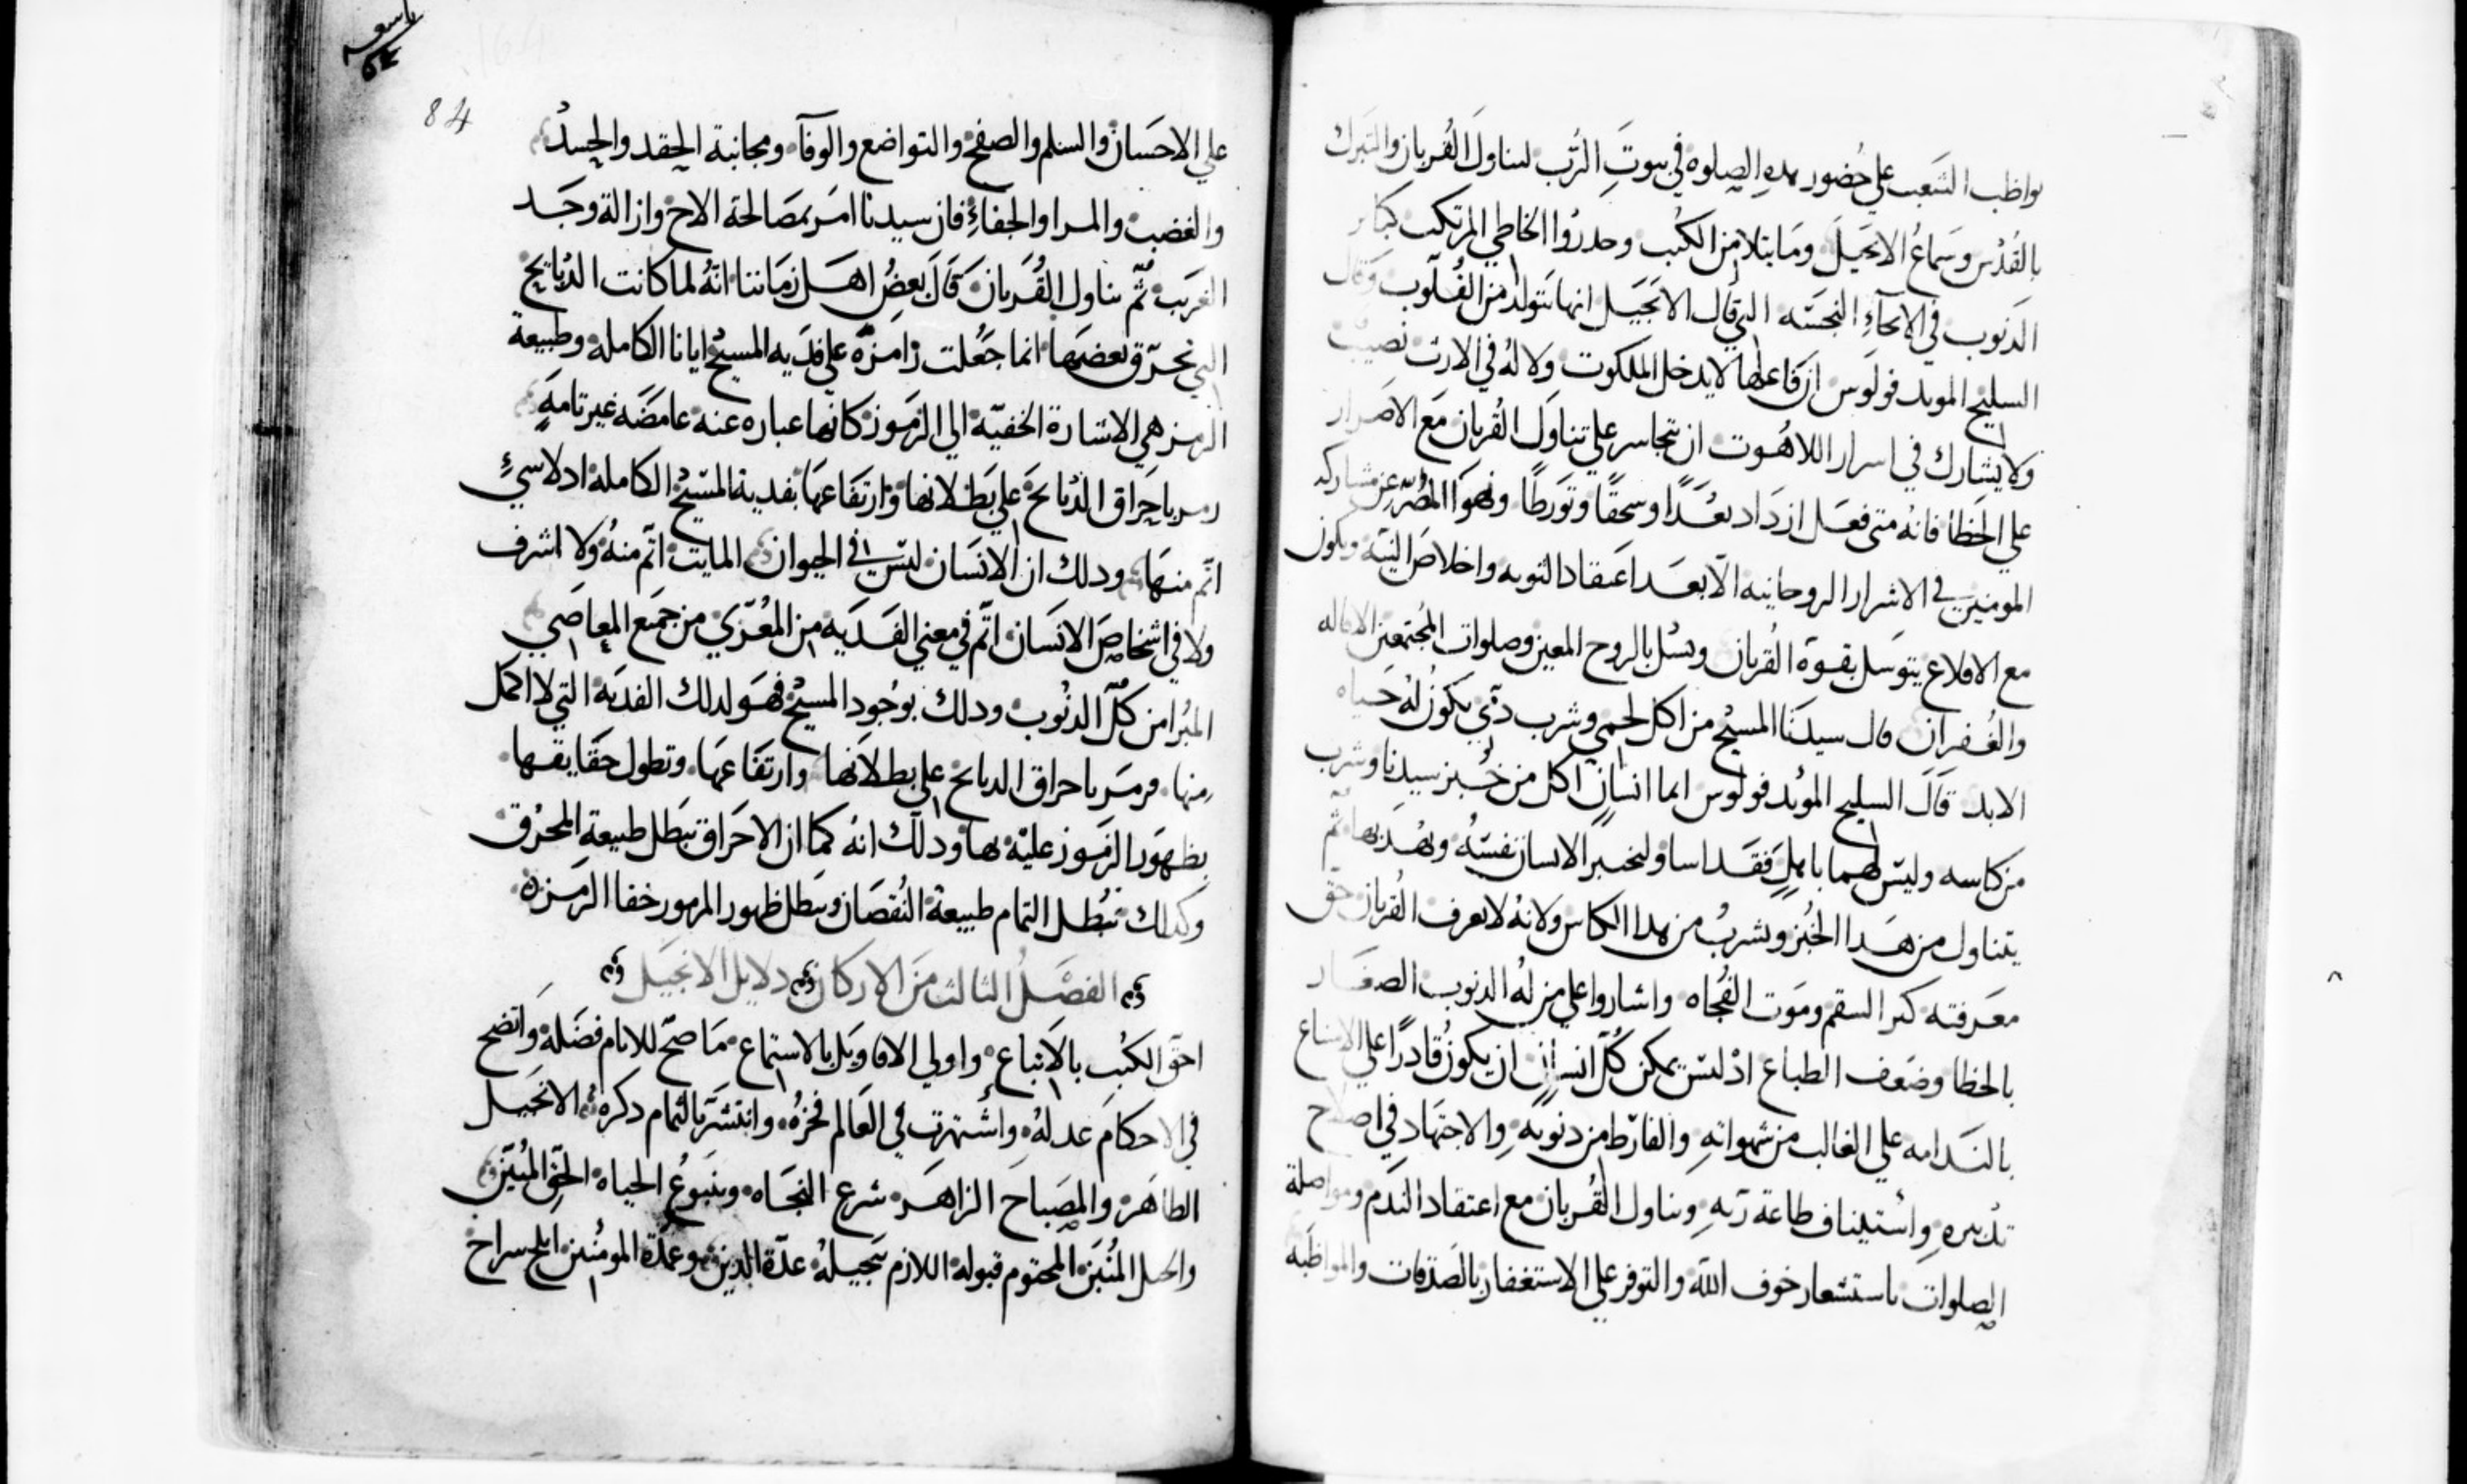 يواظب الشعب على حُضور هذه الصلوه في بيوتِ الرّب لتناول القُربان والتبرك
بالقُدْس وسَماعُ الانجيل وما يتلا من الكتب وحدرُوا الخاطي المرتكب كبار
الذنوب في الانحآءِ النجسَه التي قال الانجيل انها تتولد من القُلوب وقال
السليح الموید فولوس ان فاعلها لا يدخل الملكوت ولا لهُ في الارث نصيب
ولا يشارك في اسرار اللاهُوت ان تجاسر على تناول القُربان مَع الاصرار
على الخطا فانهُ متى فعَل ازدَاد بعُدًا وسحقًا وتورطًا ونهوا المُصّر عن مشاركه
المومنين في الاسرار الروحانيه الّا بعَد اعتقاد التوبه واخلاصَ النيّه ويكون
مع الاقلاع يتوسَل بقوة القُربان ويسُل بالروح المعين وصلوات المُجتمعين الاقاله
والغُفران قال سيدَنا المسيح من اكل لحمي وشرب دمّي يكون لهُ حَياه
الابد قَالَ السليح المويد فولوس ايما انسانٍ اكل من خُبز سيدنا وشرب
من كاسه وليسَ لهما باهلٍ فقَد اسا وليختبر الانسان نفسَهُ ويُهَذبها ثم
يتناول من هَدا الخُبز ويشربُ من هدا الكاس ولانهُ لا يعرف القُربان حق
معَرفته كثر السقم ومَوت الفُجاه واشاروا على من لهُ الدنوب الصغار
بالخطا وضَعف الطباع اذ ليسَ يمكن كُلّ انسانٍ ان يكون قادرًا على الامتناع
بالنَدامه على الغالب من شهواتهِ والفارّط من ذنوبَهِ والاجتهَاد في اصلاح
تدبيرهِ واستيناف طاعة رَبهِ وتناول القُربان مع اعتقاد الندَم ومواصلة
الصلوات باستشعار خوف الله والتوفر على الاستغفار بالصَدقات والمواظبه
تاسعه
84
على الاحسَان والسلم والصفح والتواضع والوفآء ومجانبة الحِقد والحِسدُ
والغضب والمرا والجفاءِ فان سيدنا امَر بمصَالحة الاخ وازالة وجَد
الغرَيب ثُم تناول القُربانَ قَالَ بعضُ اهَل زمَاننا انهُ لما كانت الدُبايح
التي تحرّق بعضهَا انما جَعُلت رامزَه على فدَيه المسيحْ ايانا الكامله وطبيعة
الرمز هي الاشارة الخفيّة الي المرمَوز كانها عباره عنه غامضَه غير تامهٍ
رمز باحِراق الدُبايَح على بَطلانها وارتفَاعهَا بفدية المسَيحْ الكامله اد لا شيءِ
اتّم منهَا ودلك ان الانسَان ليسَ في الحيوان المايت اتّم منهُ ولا اشرف
ولا في اشخاصَ الانسَان اتّم في معني الفَدَيه من المعُرّي من جمَيع المعاصَي
المبُرا من كُلّ الدنُوب ودلك بوُجود المسيحْ فهَو لدلك الفديَه التي لا اكمل
منها فرمَز باحراق الدبايح على بطلانها وارتفَاعهَا وتطول حقَايقها
بظهَور المرمَوز عليَه بها ودلك انهُ كما ان الاحَراق تبَطل طبيعة المحرُق
وكدلك تبُطل التمام طبيعة النُقصَان وتبطل ظهور المرموز خفا الرمَزه
الفصَلُ الثالث منَ الاركان دلايل الانجيَل
احقّ الكتُب بالاتباع واولي الاقاويَل بالاستماع مَا صحّ للانام فضَله واتضَح
في الاحكامَ عدلهُ واشتهرت في العَالم فخرُه وانتشَر بالتمام دكرهُ الانجَيل
الطاهَر والمِصَباحَ الزاهَر شرع النجَاه وينبَوعُ الحياه الحَقّ المُبَين
والحبل المُتَين المحتوم قبوله اللازم تبجيلهُ عدّة الدين وعمُدة المومُنين ابلج سراج